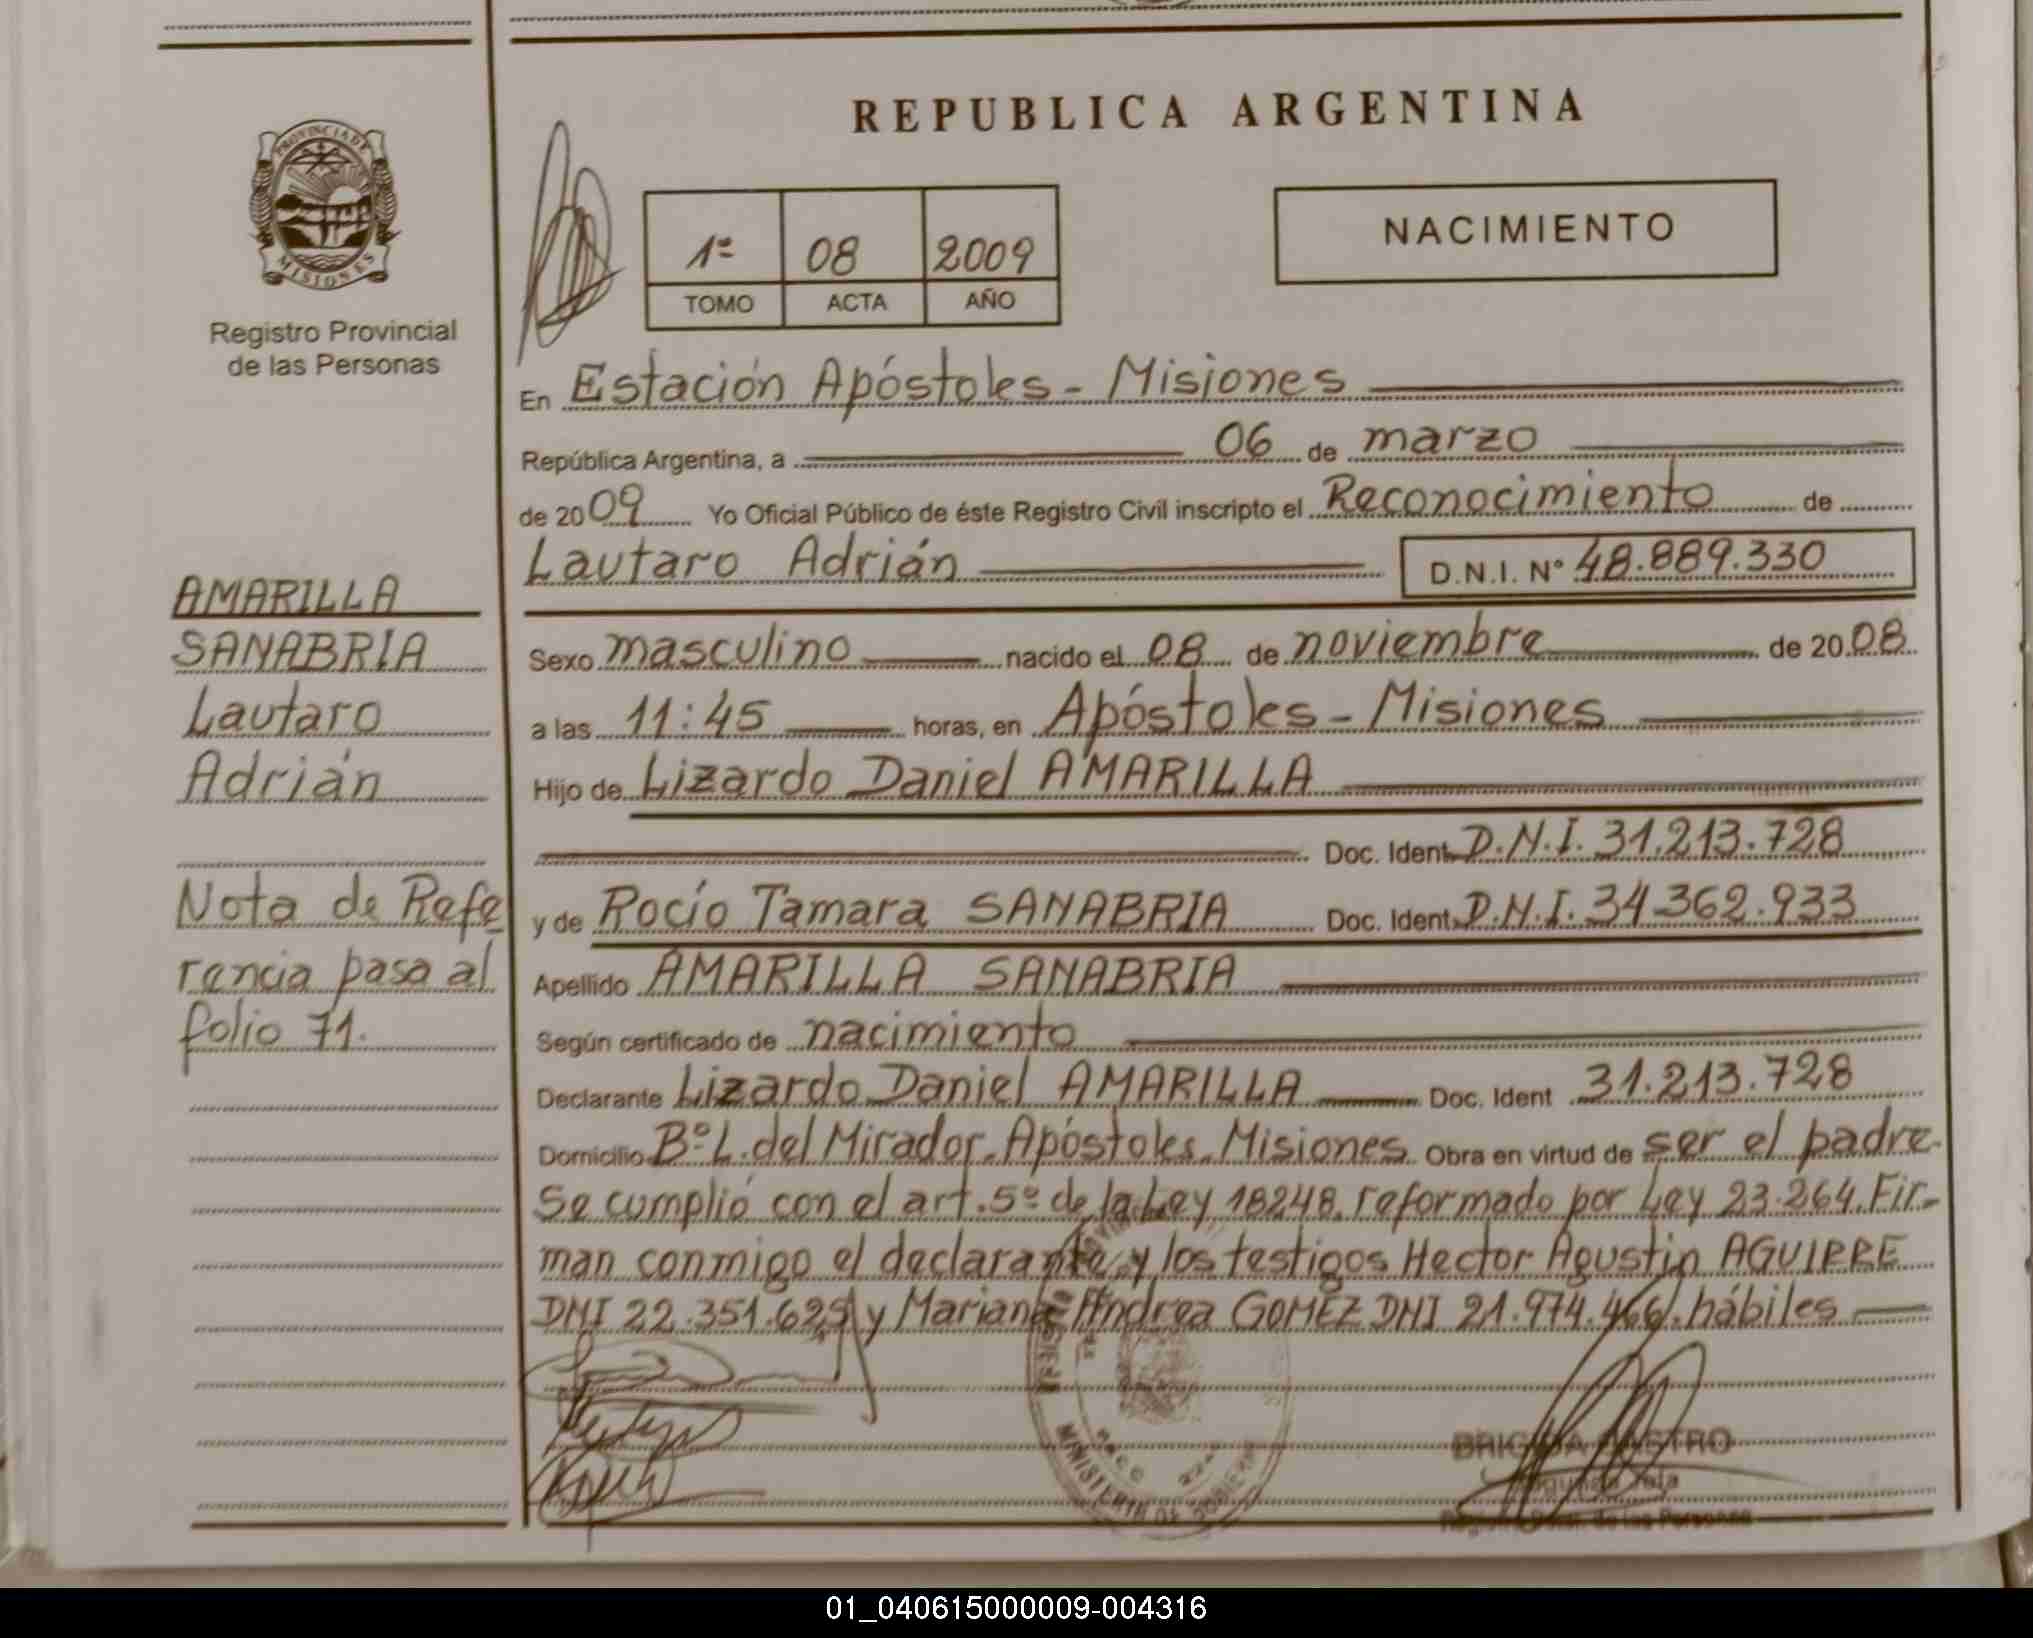 REPUBLICA ARGENTINA
PROVINCIA DE
MISIONES
Registro Provincial
de las Personas
1º 08 2009
TOMO ACTA AÑO
NACIMIENTO
En Estación Apóstoles - Misiones
República Argentina, a 06 de marzo
de 2009 Yo Oficial Público de éste Registro Civil inscripto el Reconocimiento de
Lautaro Adrián D.N.I. Nº 48.889.330
Sexo masculino nacido el 08 de noviembre de 2008
a las 11:45 horas, en Apóstoles - Misiones
Hijo de Lizardo Daniel AMARILLA
Doc. Ident. D.N.I. 31.213.728
y de Rocío Tamara SANABRIA Doc. Ident. D.N.I. 34.362.933
Apellido AMARILLA SANABRIA
Según certificado de nacimiento
Declarante Lizardo Daniel AMARILLA Doc. Ident 31.213.728
Domicilio Bº L. del Mirador. Apóstoles. Misiones Obra en virtud de ser el padre.
Se cumplió con el art. 5º de la Ley 18248, reformado por Ley 23.264. Fir-
man conmigo el declarante y los testigos Hector Agustín AGUIRRE
DNI 22.351.625 y Mariana Andrea GOMEZ DNI 21.974.466, hábiles
AMARILLA
SANABRIA
Lautaro
Adrián
Nota de Refe
rencia pasa al
folio 71.
MINISTERIO DE GOBIERNO
BRIGIDA CASTRO
de las Personas
01_040615000009-004316